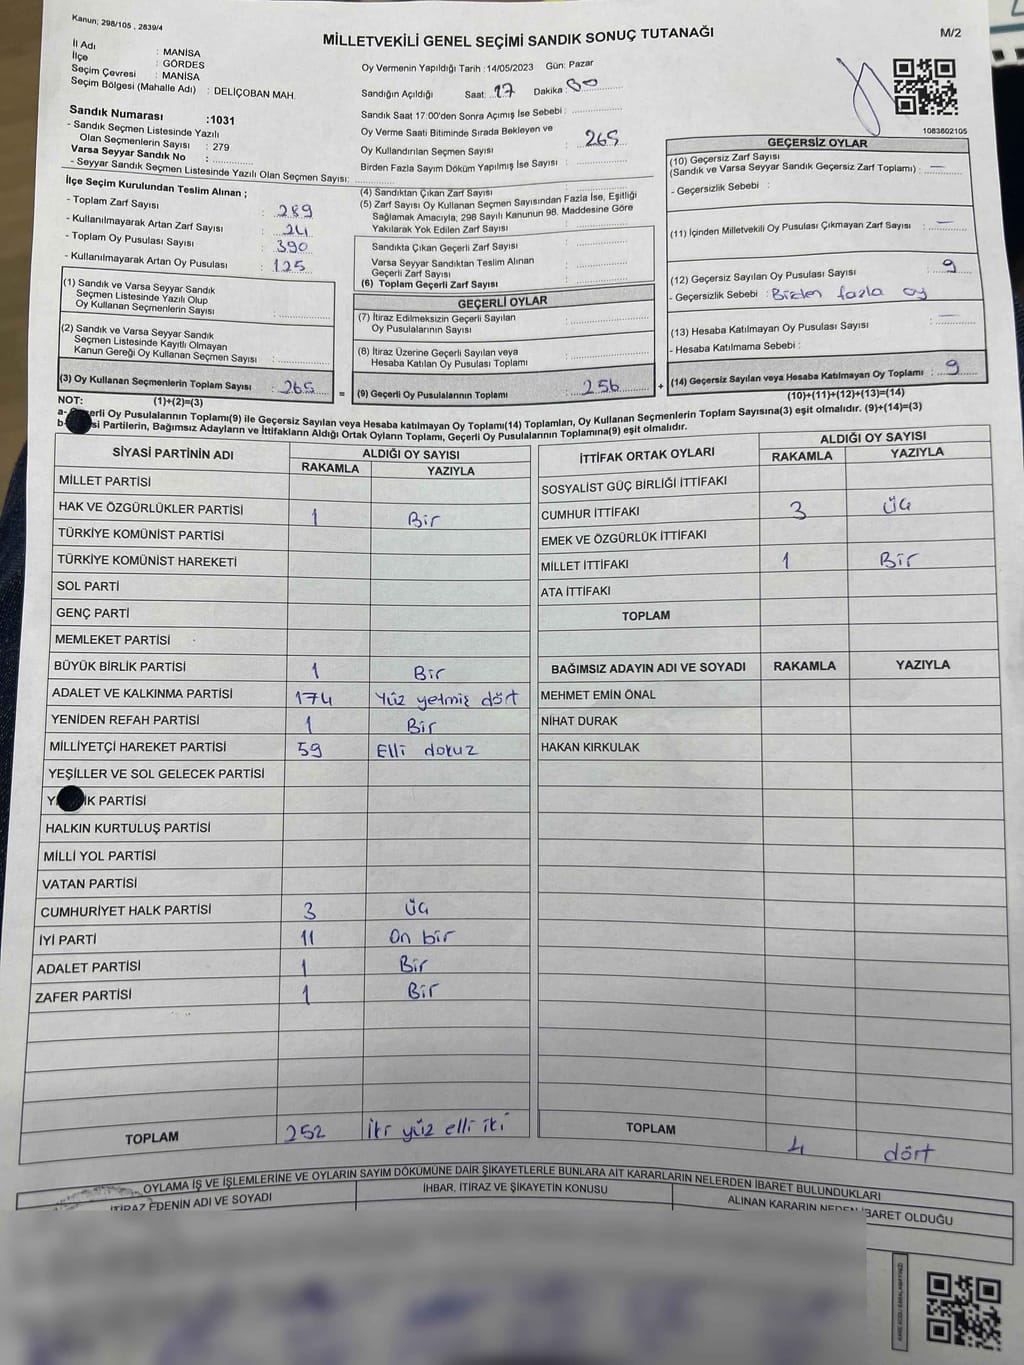 Kanun; 298/105 , 2839/4
MİLLETVEKİLİ GENEL SEÇİMİ SANDIK SONUÇ TUTANAĞI
M/2
İl Adı : MANİSA
İlçe : GÖRDES
Seçim Çevresi : MANİSA
Seçim Bölgesi (Mahalle Adı) : DELİÇOBAN MAH.
Oy Vermenin Yapıldığı Tarih : 14/05/2023 Gün: Pazar
Sandığın Açıldığı Saat: 17 Dakika 00
Sandık Saat 17:00'den Sonra Açımış İse Sebebi :
Oy Verme Saati Bitiminde Sırada Bekleyen ve
Oy Kullandırılan Seçmen Sayısı : 265
Birden Fazla Sayım Döküm Yapılmış İse Sayısı :
1083602105
Sandık Numarası :1031
- Sandık Seçmen Listesinde Yazılı
Olan Seçmenlerin Sayısı : 279
Varsa Seyyar Sandık No :
- Seyyar Sandık Seçmen Listesinde Yazılı Olan Seçmen Sayısı:
İlçe Seçim Kurulundan Teslim Alınan ;
- Toplam Zarf Sayısı : 289
- Kullanılmayarak Artan Zarf Sayısı : 24
- Toplam Oy Pusulası Sayısı : 390
- Kullanılmayarak Artan Oy Pusulası : 125
(1) Sandık ve Varsa Seyyar Sandık
Seçmen Listesinde Yazılı Olup
Oy Kullanan Seçmenlerin Sayısı :
(2) Sandık ve Varsa Seyyar Sandık
Seçmen Listesinde Kayıtlı Olmayan
Kanun Gereği Oy Kullanan Seçmen Sayısı :
(3) Oy Kullanan Seçmenlerin Toplam Sayısı : 265 =
(1)+(2)=(3)
(4) Sandıktan Çıkan Zarf Sayısı :
(5) Zarf Sayısı Oy Kullanan Seçmen Sayısından Fazla İse, Eşitliği
Sağlamak Amacıyla; 298 Sayılı Kanunun 98. Maddesine Göre
Yakılarak Yok Edilen Zarf Sayısı :
Sandıkta Çıkan Geçerli Zarf Sayısı :
Varsa Seyyar Sandıktan Teslim Alınan
Geçerli Zarf Sayısı :
(6) Toplam Geçerli Zarf Sayısı :
GEÇERLİ OYLAR
(7) İtiraz Edilmeksizin Geçerli Sayılan
Oy Pusulalarının Sayısı :
(8) İtiraz Üzerine Geçerli Sayılan veya
Hesaba Katılan Oy Pusulası Toplamı :
(9) Geçerli Oy Pusulalarının Toplamı : 256 +
GEÇERSİZ OYLAR
(10) Geçersiz Zarf Sayısı
(Sandık ve Varsa Seyyar Sandık Geçersiz Zarf Toplamı) : —
- Geçersizlik Sebebi :
(11) İçinden Milletvekili Oy Pusulası Çıkmayan Zarf Sayısı : —
(12) Geçersiz Sayılan Oy Pusulası Sayısı : 9
- Geçersizlik Sebebi : Birden fazla oy
(13) Hesaba Katılmayan Oy Pusulası Sayısı : —
- Hesaba Katılmama Sebebi :
(14) Geçersiz Sayılan veya Hesaba Katılmayan Oy Toplamı : 9
(10)+(11)+(12)+(13)=(14)
NOT:
a- erli Oy Pusulalarının Toplamı(9) ile Geçersiz Sayılan veya Hesaba katılmayan Oy Toplamı(14) Toplamları, Oy Kullanan Seçmenlerin Toplam Sayısına(3) eşit olmalıdır. (9)+(14)=(3)
b- si Partilerin, Bağımsız Adayların ve İttifakların Aldığı Ortak Oyların Toplamı, Geçerli Oy Pusulalarının Toplamına(9) eşit olmalıdır.
SİYASİ PARTİNİN ADI ALDIĞI OY SAYISI
RAKAMLA YAZIYLA
MİLLET PARTİSİ
HAK VE ÖZGÜRLÜKLER PARTİSİ 1 Bir
TÜRKİYE KOMÜNİST PARTİSİ
TÜRKİYE KOMÜNİST HAREKETİ
SOL PARTİ
GENÇ PARTİ
MEMLEKET PARTİSİ
BÜYÜK BİRLİK PARTİSİ 1 Bir
ADALET VE KALKINMA PARTİSİ 174 Yüz yetmiş dört
YENİDEN REFAH PARTİSİ 1 Bir
MİLLİYETÇİ HAREKET PARTİSİ 59 Elli dokuz
YEŞİLLER VE SOL GELECEK PARTİSİ
Y İK PARTİSİ
HALKIN KURTULUŞ PARTİSİ
MİLLİ YOL PARTİSİ
VATAN PARTİSİ
CUMHURİYET HALK PARTİSİ 3 Üç
İYİ PARTİ 11 On bir
ADALET PARTİSİ 1 Bir
ZAFER PARTİSİ 1 Bir
TOPLAM 252 İki yüz elli iki
İTTİFAK ORTAK OYLARI ALDIĞI OY SAYISI
RAKAMLA YAZIYLA
SOSYALİST GÜÇ BİRLİĞİ İTTİFAKI
CUMHUR İTTİFAKI 3 Üç
EMEK VE ÖZGÜRLÜK İTTİFAKI
MİLLET İTTİFAKI 1 Bir
ATA İTTİFAKI
TOPLAM
BAĞIMSIZ ADAYIN ADI VE SOYADI RAKAMLA YAZIYLA
MEHMET EMİN ÖNAL
NİHAT DURAK
HAKAN KIRKULAK
TOPLAM 4 dört
OYLAMA İŞ VE İŞLEMLERİNE VE OYLARIN SAYIM DÖKÜMÜNE DAİR ŞİKAYETLERLE BUNLARA AİT KARARLARIN NELERDEN İBARET BULUNDUKLARI
İTİRAZ EDENİN ADI VE SOYADI İHBAR, İTİRAZ VE ŞİKAYETİN KONUSU ALINAN KARARIN NEDEN İBARET OLDUĞU